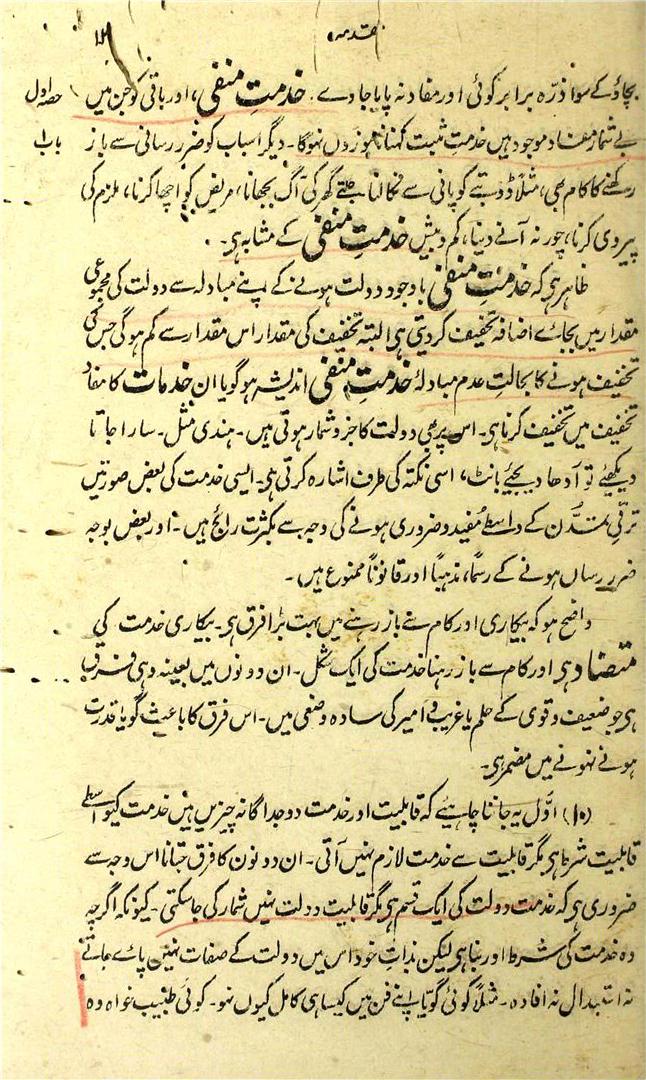 مقدمہ
۱۴
حصہ اول
باب ۱
بچاؤ کے سوا ذرّہ برابر کوئی اور مفاد نہ پایا جاوے۔ خدمتِ منفی، اور باقی کو جن میں
بے شمار مفاد موجود ہیں خدمتِ مثبت کہنا ناموزوں نہوگا۔ دیگر اسباب کو ضرر رسانی سے باز
رکھنے کا کام بھی، مثلاً ڈوبتے کو پانی سے نکالنا جلتے گھر کی آگ بجھانا، مریض کو اچھا کرنا، ملزم کی
پیروی کرنا، چور نہ آنے دینا، کم و بیش خدمتِ منفی کے مشابہ ہی۔
ظاہر ہی کہ خدمتِ منفی باوجود دولت ہونے کے اپنے مبادلہ سے دولت کی مجموعی
مقدار میں بجائے اضافہ تخفیف کر دیتی ہی البتہ تخفیف کی مقدار اس مقدار سے کم ہوگی جس کی
تخفیف ہونے کا بحالتِ عدم مبادلۂ خدمتِ منفی اندیشہ ہو گویا ان خدمات کا مفاد
تخفیف میں تخفیف کرنا ہی۔ اس پر بھی دولت کا جزو شمار ہوتی ہیں۔ ہندی مثل۔ سارا جاتا
دیکھئے تو آدھا دیجئے بانٹ، اسی نکتہ کی طرف اشارہ کرتی ہی۔ ایسی خدمت کی بعض صورتیں
ترقیِ تمدّن کے واسطے مفید و ضروری ہونے کی وجہ سے بکثرت رائج ہیں۔ اور بعض بوجہ
ضرر رساں ہونے کے رسماً، مذہباً اور قانوناً ممنوع ہیں۔
واضح ہو کہ بیکاری اور کام سے باز رہنے میں بہت بڑا فرق ہی۔ بیکاری خدمت کی
متضاد ہی اور کام سے باز رہنا خدمت کی ایک شکل۔ ان دونوں میں بعینہ وہی فرق
ہی جو ضعیف و قوی کے حلم یا غریب و امیر کی سادہ وضعی میں۔ اس فرق کا باعث گویا قدرت
ہونے نہونے میں مضمر ہی۔
(۱۰) اوّل یہ جاننا چاہیئے کہ قابلیت اور خدمت دو جداگانہ چیزیں ہیں خدمت کیواسطے
قابلیت شرط ہی مگر قابلیت سے خدمت لازم نہیں آتی۔ ان دونوں کا فرق جتانا اس وجہ سے
ضروری ہی کہ خدمت دولت کی ایک قسم ہی مگر قابلیت دولت نہیں شمار کی جا سکتی۔ کیونکہ اگرچہ
وہ خدمت کی شرط اور بنا ہی لیکن بذاتِ خود اس میں دولت کے صفات نہیں پائے جاتے
نہ استبدال نہ افادہ۔ مثلاً کوئی گویّا اپنے فن میں کیسا ہی کامل کیوں نہو۔ کوئی طبیب خواہ وہ